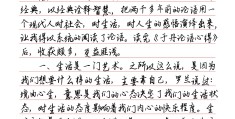 经典，以经典诠释智慧，把两千多年前的论语用一
个现代人对社会，对生活，对人生的感悟演绎出来，
让我得以系统的阅读了论语。读完《于丹论语心得》
后，收获颇多，受益匪浅。
一、生活是一门艺术。之所以这么说，是因为
我们想要什么样的生活，主要靠自己，罗兰说过：
境由心生，意思是我们的心态决定了我们的生活状
态，对生活的态度影响着我们内心的快乐程度。生